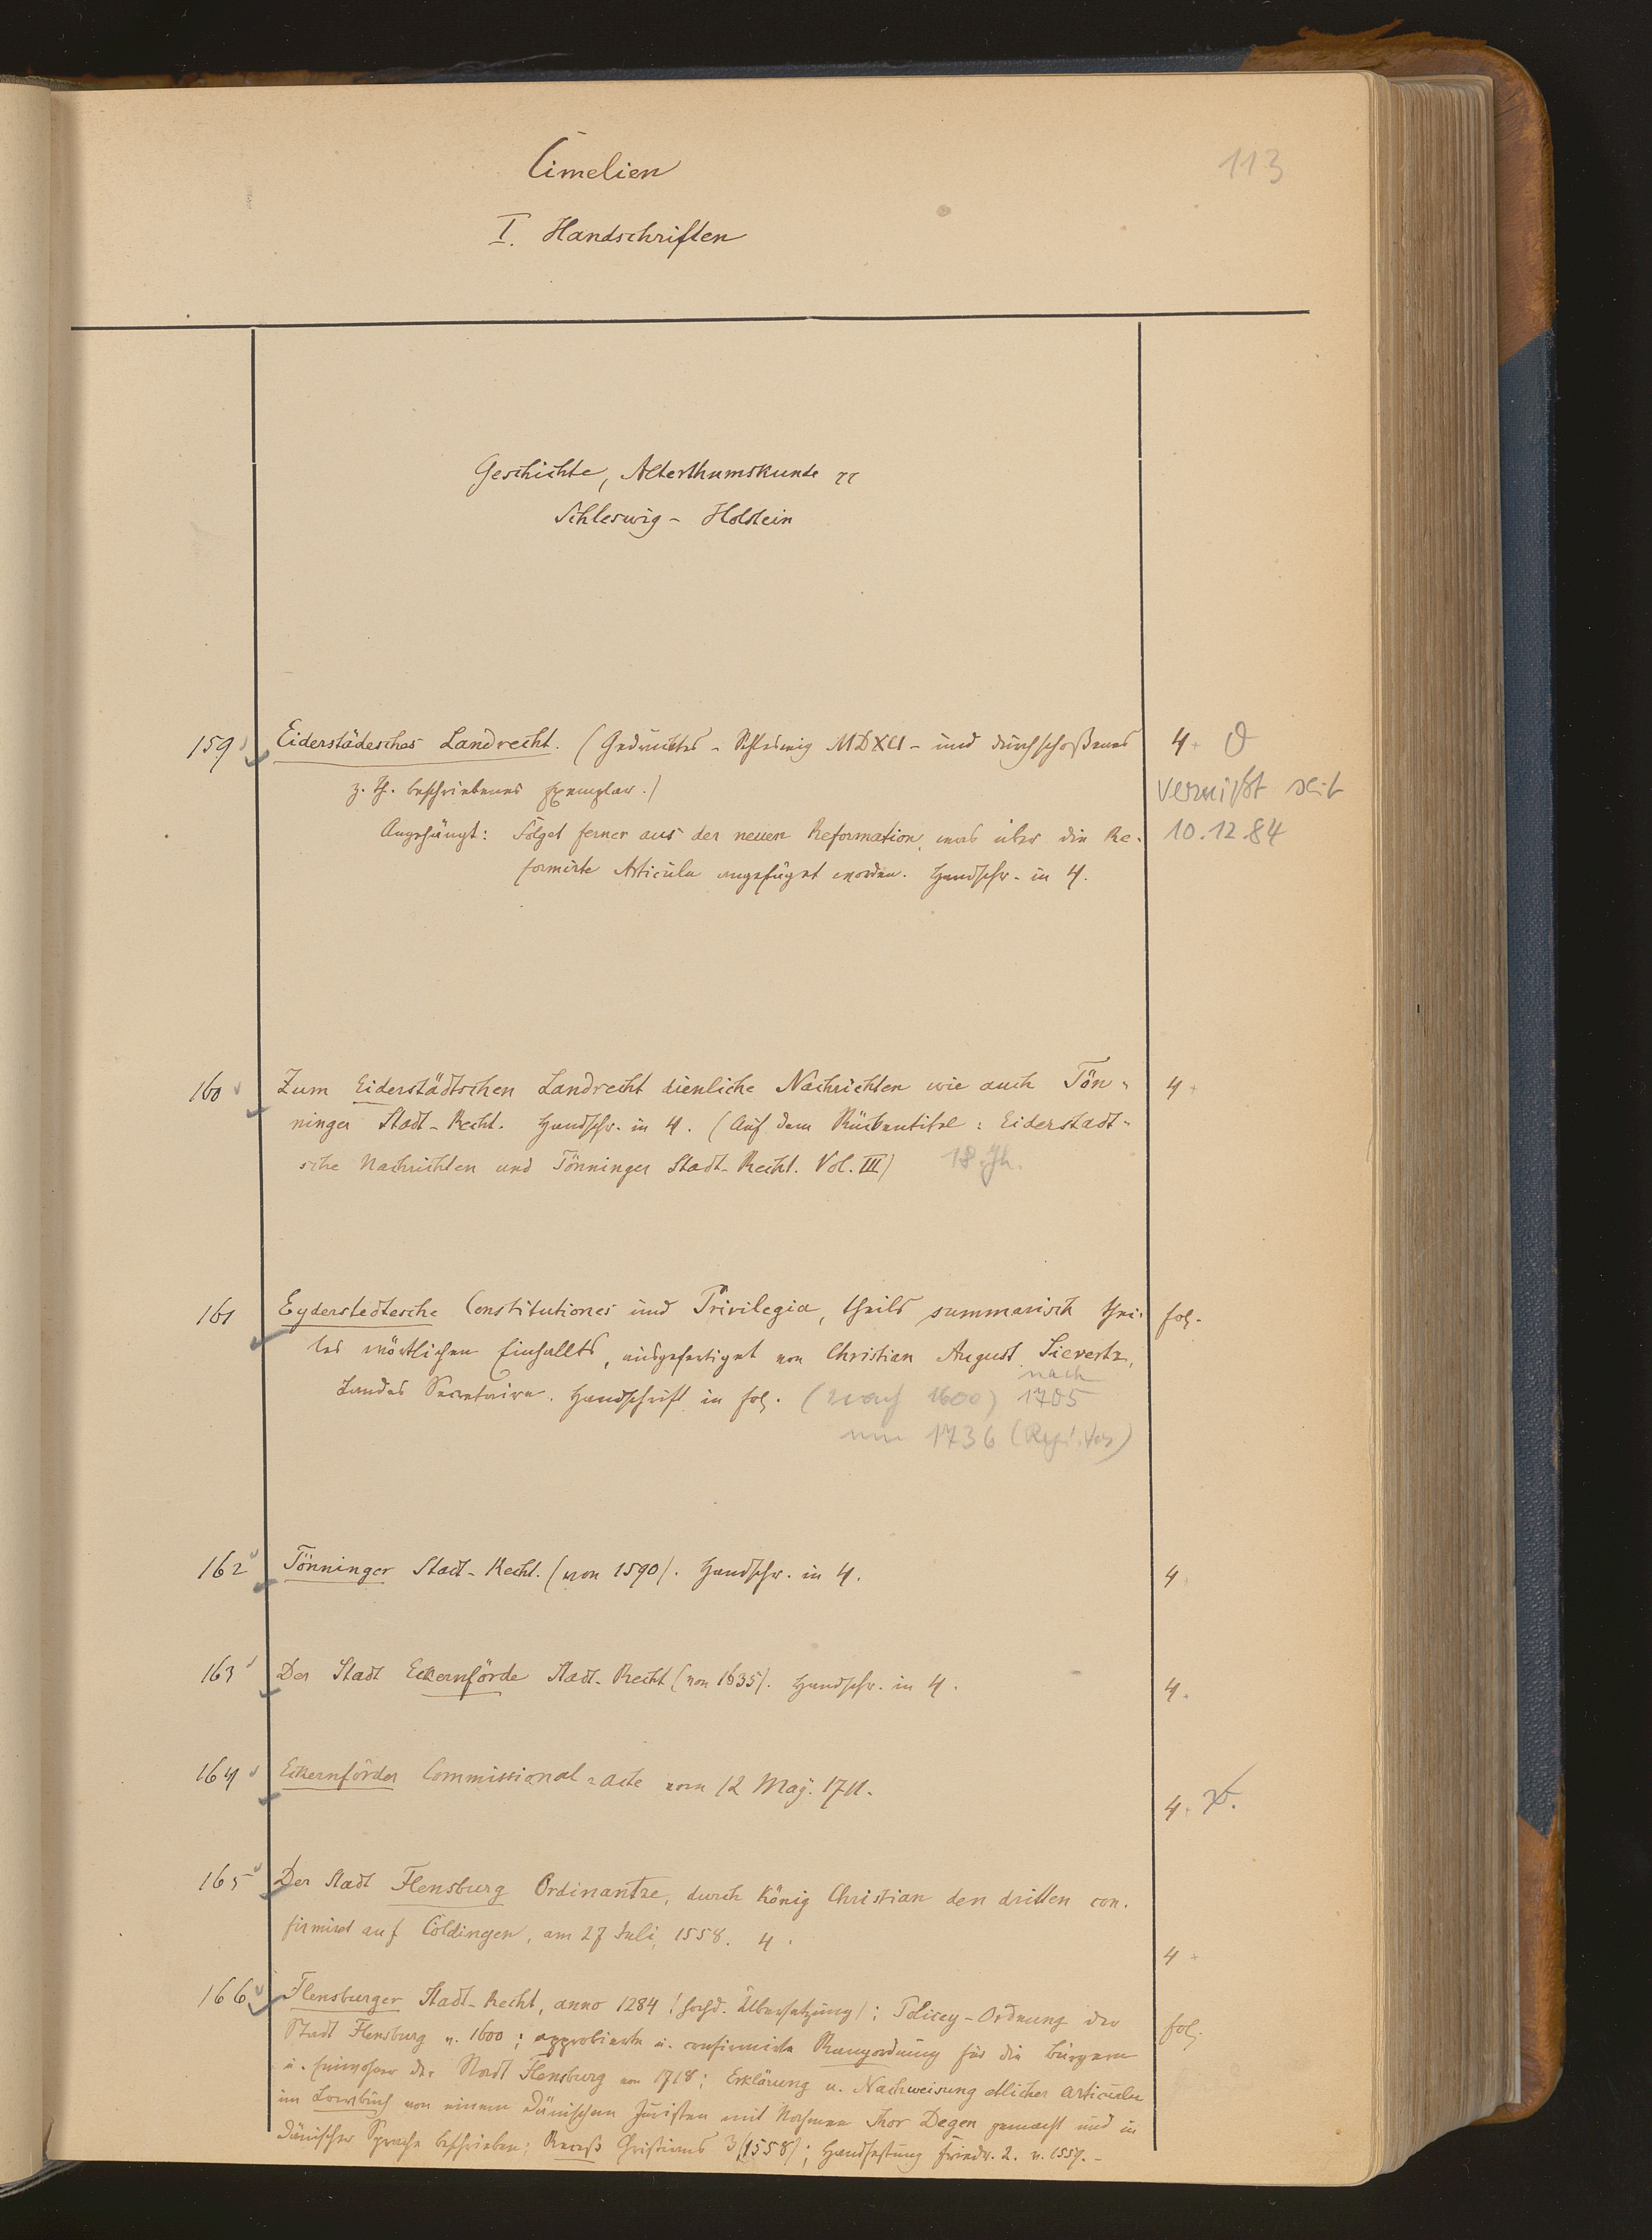 Cimelien
113
I. Handschriften
Geschichte, Alterthumskunde
Schleswig - Holstein
159 Eiderstädesches Landrecht. (Gedrucktes - Schleswig MDXCI - und durchschoßenes 4
z. Th. beschriebenes Exemplar.)
vermißt seit
10.12.84
Angehängt: Folget ferner aus der neuen Reformation, was über die Re-
formirte Articula angefüget worden. Handschr. in 4.
160 Zum Eiderstädtschen Landrecht dienliche Nachrichten wie auch Tön- 4
ninger Stadt-Recht. Handschr. in 4. (Auf dem Rückentitel: Eiderstadt-
sche Nachrichten und Tönninger Stadt-Recht. Vol. III) 18. Jh.
161 Eyderstedtesche Constitutiones und Privilegia, theils summarisch thei- fol.
les wörtlichen Einhallts, ausgefertiget von Christian August Sievertz,
nach
Landes Secretaire. Handschrift in fol. (nach 1600) 1705
um 1736
162 Tönninger Stadt-Recht. (von 1590). Handschr. in 4. 4
163 Der Stadt Eckernförde Stadt-Recht (von 1635). Handschr. in 4. 4.
164 Eckernförder Commissional-acte vom 12 May. 1711. 4
165 Der Stadt Flensburg Ordinantze, durch König Christian den dritten con-
firmirt auf Coldingen, am 27 Juli, 1558. 4. 4
166 Flensburger Stadt-Recht, anno 1284 (hochd. Übersetzung); Policey-Ordnung der fol.
Stadt Flensburg v. 1600; approbierte u. confirmirte Rangordnung für die Bürgern
u. Einwohner der Stadt Flensburg von 1718; Erklärung u. Nachweisung etlicher Articulu
im Lowbuch von einem Dänischen Juristen mit Nahmen Thor Degen gemacht und in
Dänischer Sprache beschrieben; Receß Christians 3 (1558); Handfestung Friedr. 2. v. 1559.-